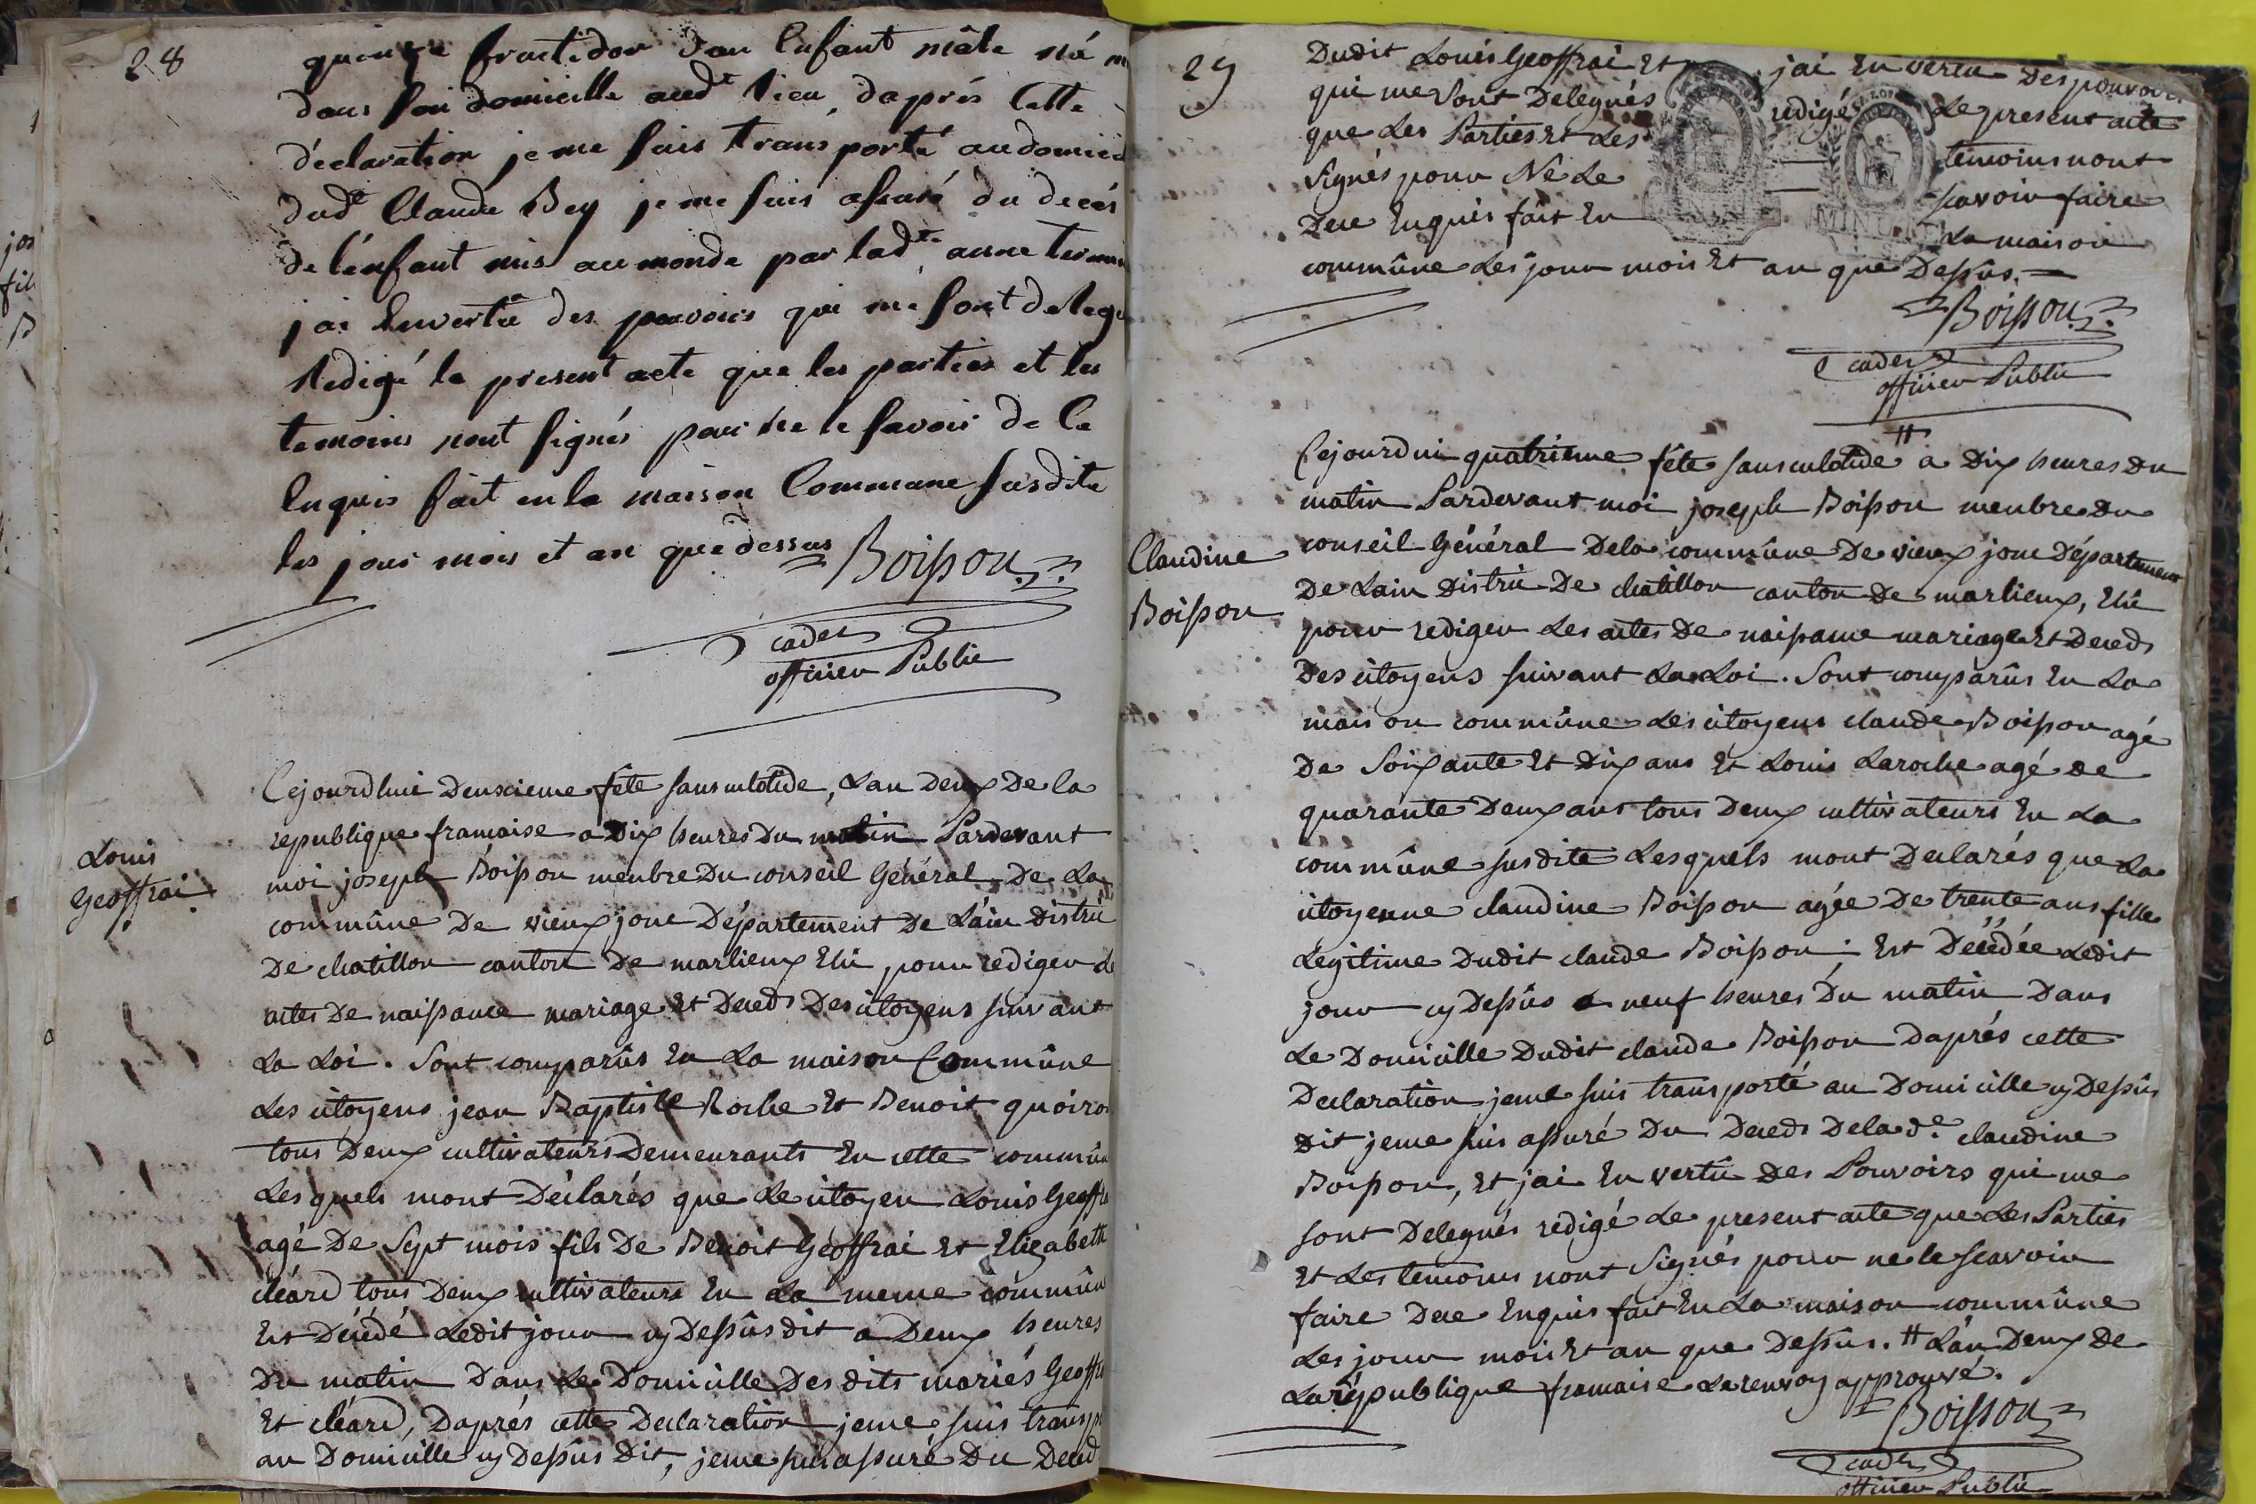 28
quinze fructidor d'un Enfant mâle né
dans son domicille aud.t lieu, daprés Cette
déclaration je me suis transporté au domicil
dud.t Claude Bey je me suis assuré du decés
de lénfant mis au monde par lad.te anne
jai Envertû des pouvoirs qui me sont delegu
Redigé le present acte que les parties et les
temoins nont signés pour ne le savoir de Ce
Enquis fait en la maison Commune susdite
les jour mois et an que dessus
Boisson
cadet
officier Public
Louis
Geoffrai
Cejourdhui Deuxieme fête sansculotide, Lan Deux De la
republique francaise a Dix heures Du matin Pardevant
moi joseph Boisson menbre Du conseil Général De La
commûne De vieux jonc Département De Láin Distric
De chatillon canton De marlieux Elû, pour rediger Le
actes De naissance mariage et Deceds Des citoyens suivant
La Loi. Sont comparûs En La maison Commûne
Les citoyens jean Baptiste Roche Et Benoit quoiro
tous Deux cultivateurs Demeurants En cette commûn
Lesquels mont Déclarés que Le citoyen Louis Geoffra
agé De Sept mois fils De Benoit Geoffrai Et Elizabeth
cléard tous Deux cultivateurs En La meme commûn
Est Décédé Ledit jour cy Dessûs dit a Deux heures
Du matin Dans Le Domicille Des dits mariés Geoffra
Et cléard, Daprés cette Declaration jeme suis transpo
au Domicille cy Dessûs Dit, jeme suis assuré Du Deced
29
Dudit Louis Geoffrai Et jai En vertu Des pouvoirs
qui me Sont Delegués redigé Le present acte
que Les Parties Et Les temoins nont
Signés pour Ne Le scavoir faire
Dece Enquis fait En La maison
commûne Les jour mois Et an que Dessûs.
Boisson
cadet
officier Public
Claudine
Boisson
Cejourdui quatrieme fête sansculotide # a Dix heures Du
matin Pardevant moi joseph Boisson menbre Du
conseil Général Dela commûne De vieux jonc Département
De Lain Distric De chatillon canton De marlieux, Elû
pour rediger Les actes De naissance mariage Et Deceds
Des citoyens suivant La Loi. Sont comparûs En La
maison commûne Les citoyens claude Boisson agé
De Soixante Et Dix ans Et Louis Laroche agé De
quarante Deux ans tous Deux cultivateurs En La
commûne susdite Lesquels mont Declarés que La
citoyenne claudine Boisson agée De trente ans fille
Légitime Dudit claude Boisson; Est Décédée Ledit
jour cy Dessûs a neuf heures Du matin Dans
Le Domicille Dudit claude Boisson Daprés cette
Declaration jeme suis transporté au Domicille cy Dessûs
Dit jeme suis assuré Du Deceds De lad.e claudine
Boisson, Et jai En vertû Des Pouvoirs qui me
sont Delegués redigé Le present acte que Les Parties
Et Les temoins nont Signés pour ne le scavoir
faire Dece Enquis fait En La maison commûne
Les jour mois Et an que Dessûs. # Lán Deux De
La république francaise Le renvoy approuvé.
Boisson
cadet
officier Public